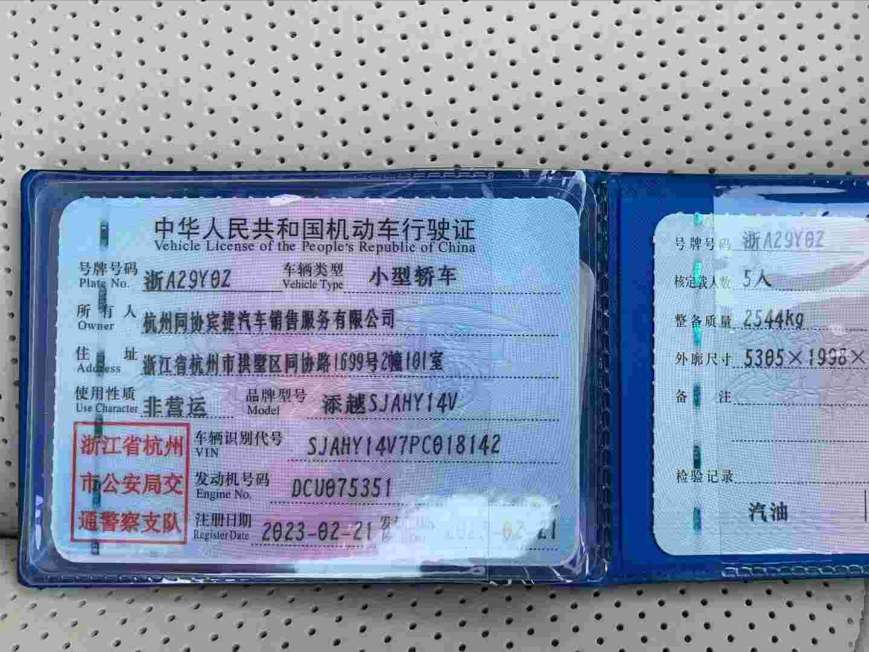 中华人民共和国机动车行驶证
Vehicle License of the People's Republic of China
号牌号码 浙A29Y0Z 车辆类型 小型轿车
Plate No. Vehicle Type
所有人 杭州同协宾捷汽车销售服务有限公司
Owner
住址 浙江省杭州市拱墅区同协路1699号2幢101室
Address
使用性质 非营运 品牌型号 添越SJAHY14V
Use Character Model
浙江省杭州
市公安局交
通警察支队
车辆识别代号 SJAHY14V7PC018142
VIN
发动机号码 DCU075351
Engine No.
注册日期 2023-02-21 2023-02-21
Register Date
号牌号码 浙A29Y0Z
核定载人数 5人
整备质量 2544kg
外廓尺寸 5305×1998×
备注
检验记录
汽油